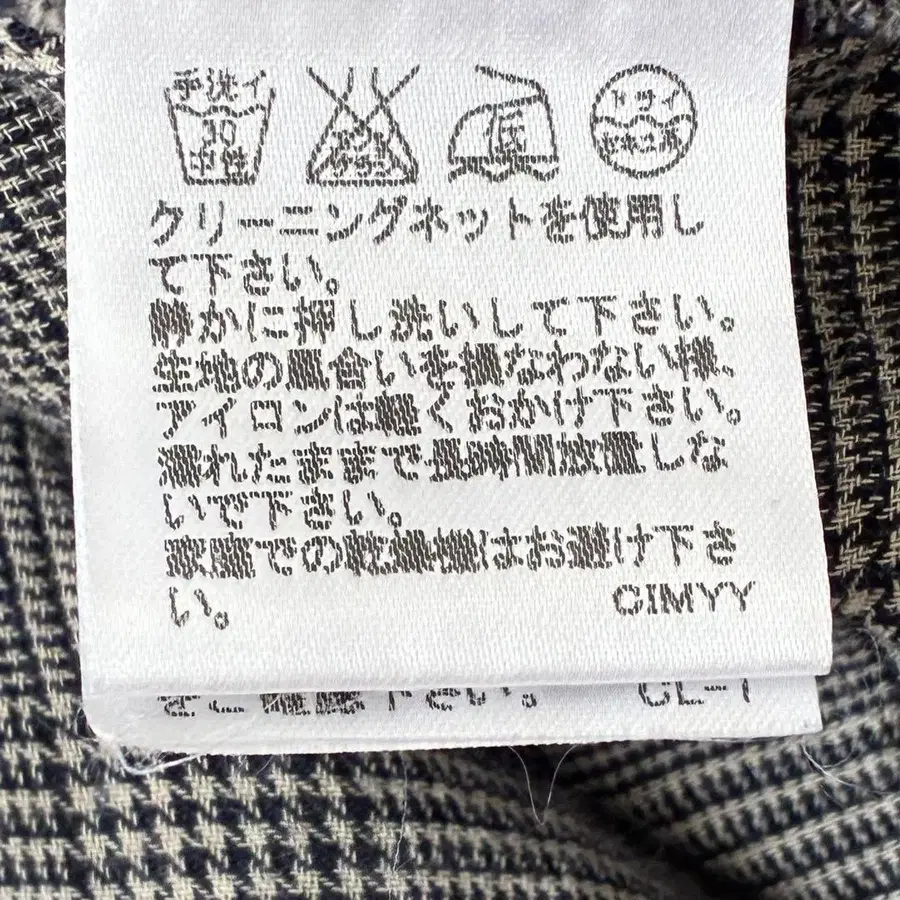 手洗イ
30
中性
エンソサラシ
低
ドライ
セキユ系
クリーニングネットを使用し
て下さい。
静かに押し洗いして下さい。
生地の風合いを損なわない様、
アイロンは軽くおかけ下さい。
濡れたままで長時間放置しな
いで下さい。
家庭での乾燥機はお避け下さ
い。
CIMYY
ご確認下さい。 CL-1